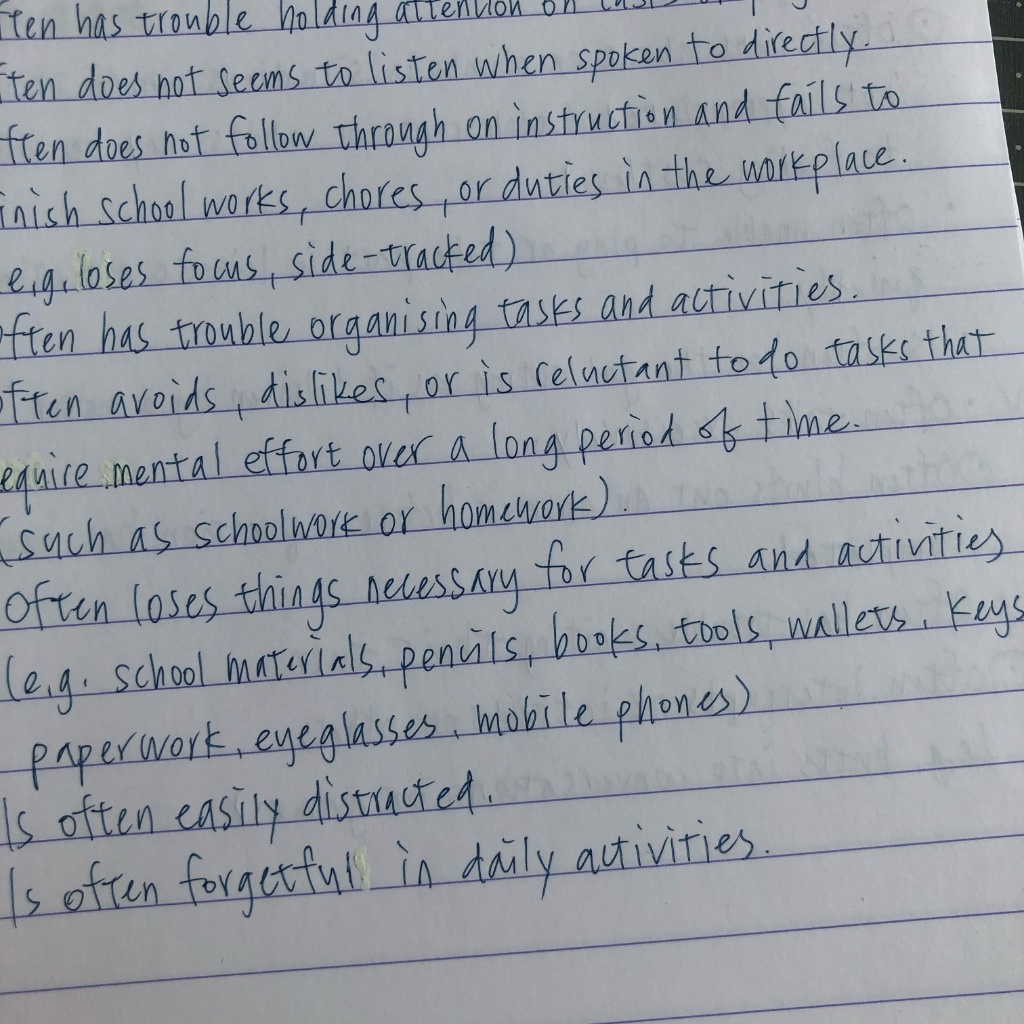 ften has trouble holding attention on
ften does not seems to listen when spoken to directly.
ften does not follow through on instruction and fails to
inish school works, chores, or duties in the workplace.
e.g. loses focus, side-tracked)
often has trouble organising tasks and activities.
often avoids, dislikes, or is reluctant to do tasks that
equire mental effort over a long period of time.
(such as schoolwork or homework).
Often loses things necessary for tasks and activities
(e.g. school materials, pencils, books, tools, wallets, keys
paperwork, eyeglasses, mobile phones)
Is often easily distracted.
Is often forgetful in daily activities.